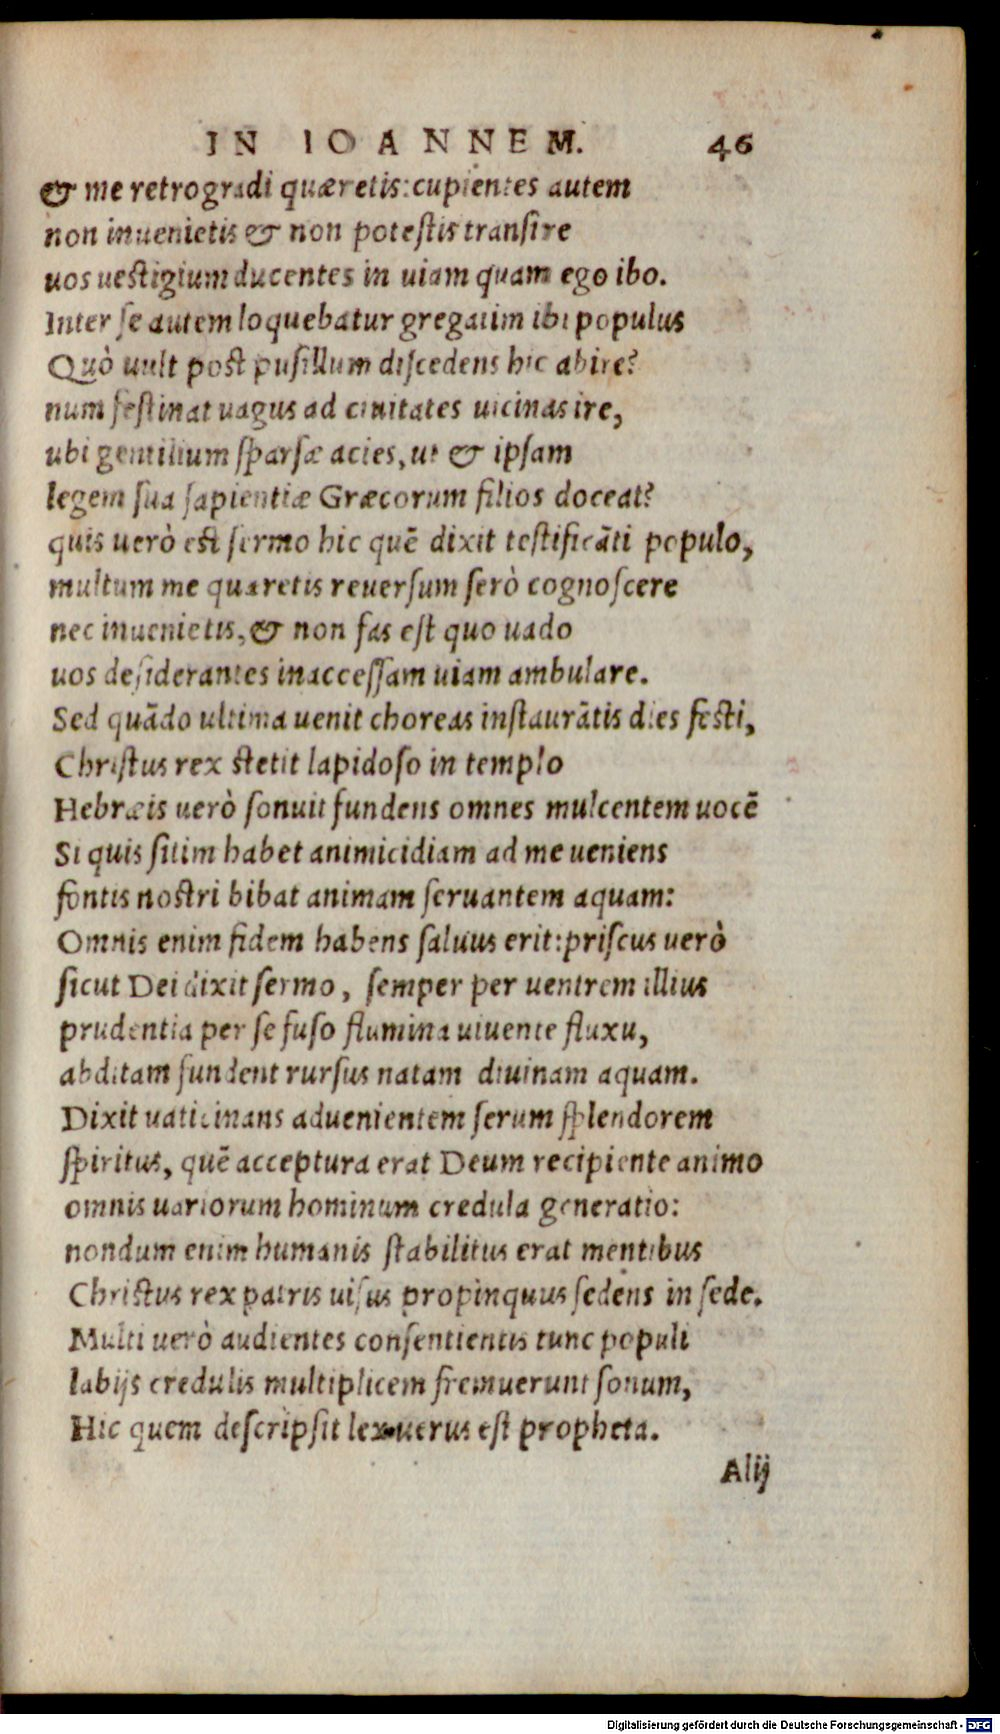 IN IOANNEM. 46
& me retrogradi quæretis: cupientes autem
non inuenietis & non potestis transire
uos uestigium ducentes in uiam quam ego ibo.
Inter se autem loquebatur gregatim ibi populus
Quò uult post pusillum discedens hic abire?
num festinat uagus ad ciuitates uicinas ire,
ubi gentilium sparsæ acies, ut & ipsam
legem sua sapientiæ Græcorum filios doceat?
quis uerò est sermo hic quē dixit testificāti populo,
multum me quæretis reuersum serò cognoscere
nec inuenietis, & non fas est quo uado
uos desiderantes inaccessam uiam ambulare.
Sed quādo ultima uenit choreas instaurātis dies festi,
Christus rex stetit lapidoso in templo
Hebræis uerò sonuit fundens omnes mulcentem uocē
Si quis sitim habet animicidiam ad me ueniens
fontis nostri bibat animam seruantem aquam:
Omnis enim fidem habens saluus erit: priscus uerò
sicut Dei dixit sermo, semper per uentrem illius
prudentia per se fuso flumina uiuente fluxu,
abditam fundent rursus natam diuinam aquam.
Dixit uaticinans aduenientem serum splendorem
spiritus, quē acceptura erat Deum recipiente animo
omnis uariorum hominum credula generatio:
nondum enim humanis stabilitus erat mentibus
Christus rex patris uisus propinquus sedens in sede.
Multi uerò audientes consentientis tunc populi
labijs credulis multiplicem fremuerunt sonum,
Hic quem descripsit lex uerus est propheta.
Alij
Digitalisierung gefördert durch die Deutsche Forschungsgemeinschaft - DFG